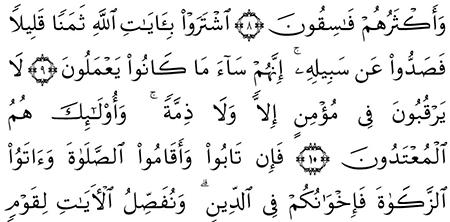 وَأَكْثَرُهُمْ فَـٰسِقُونَ ۝٨ ٱشْتَرَوْا۟ بِـَٔايَـٰتِ ٱللَّهِ ثَمَنًا قَلِيلًا
فَصَدُّوا۟ عَن سَبِيلِهِۦٓ ۚ إِنَّهُمْ سَآءَ مَا كَانُوا۟ يَعْمَلُونَ ۝٩ لَا
يَرْقُبُونَ فِى مُؤْمِنٍ إِلًّا وَلَا ذِمَّةً ۚ وَأُو۟لَـٰٓئِكَ هُمُ
ٱلْمُعْتَدُونَ ۝١٠ فَإِن تَابُوا۟ وَأَقَامُوا۟ ٱلصَّلَوٰةَ وَءَاتَوُا۟
ٱلزَّكَوٰةَ فَإِخْوَٰنُكُمْ فِى ٱلدِّينِ ۗ وَنُفَصِّلُ ٱلْـَٔايَـٰتِ لِقَوْمٍ